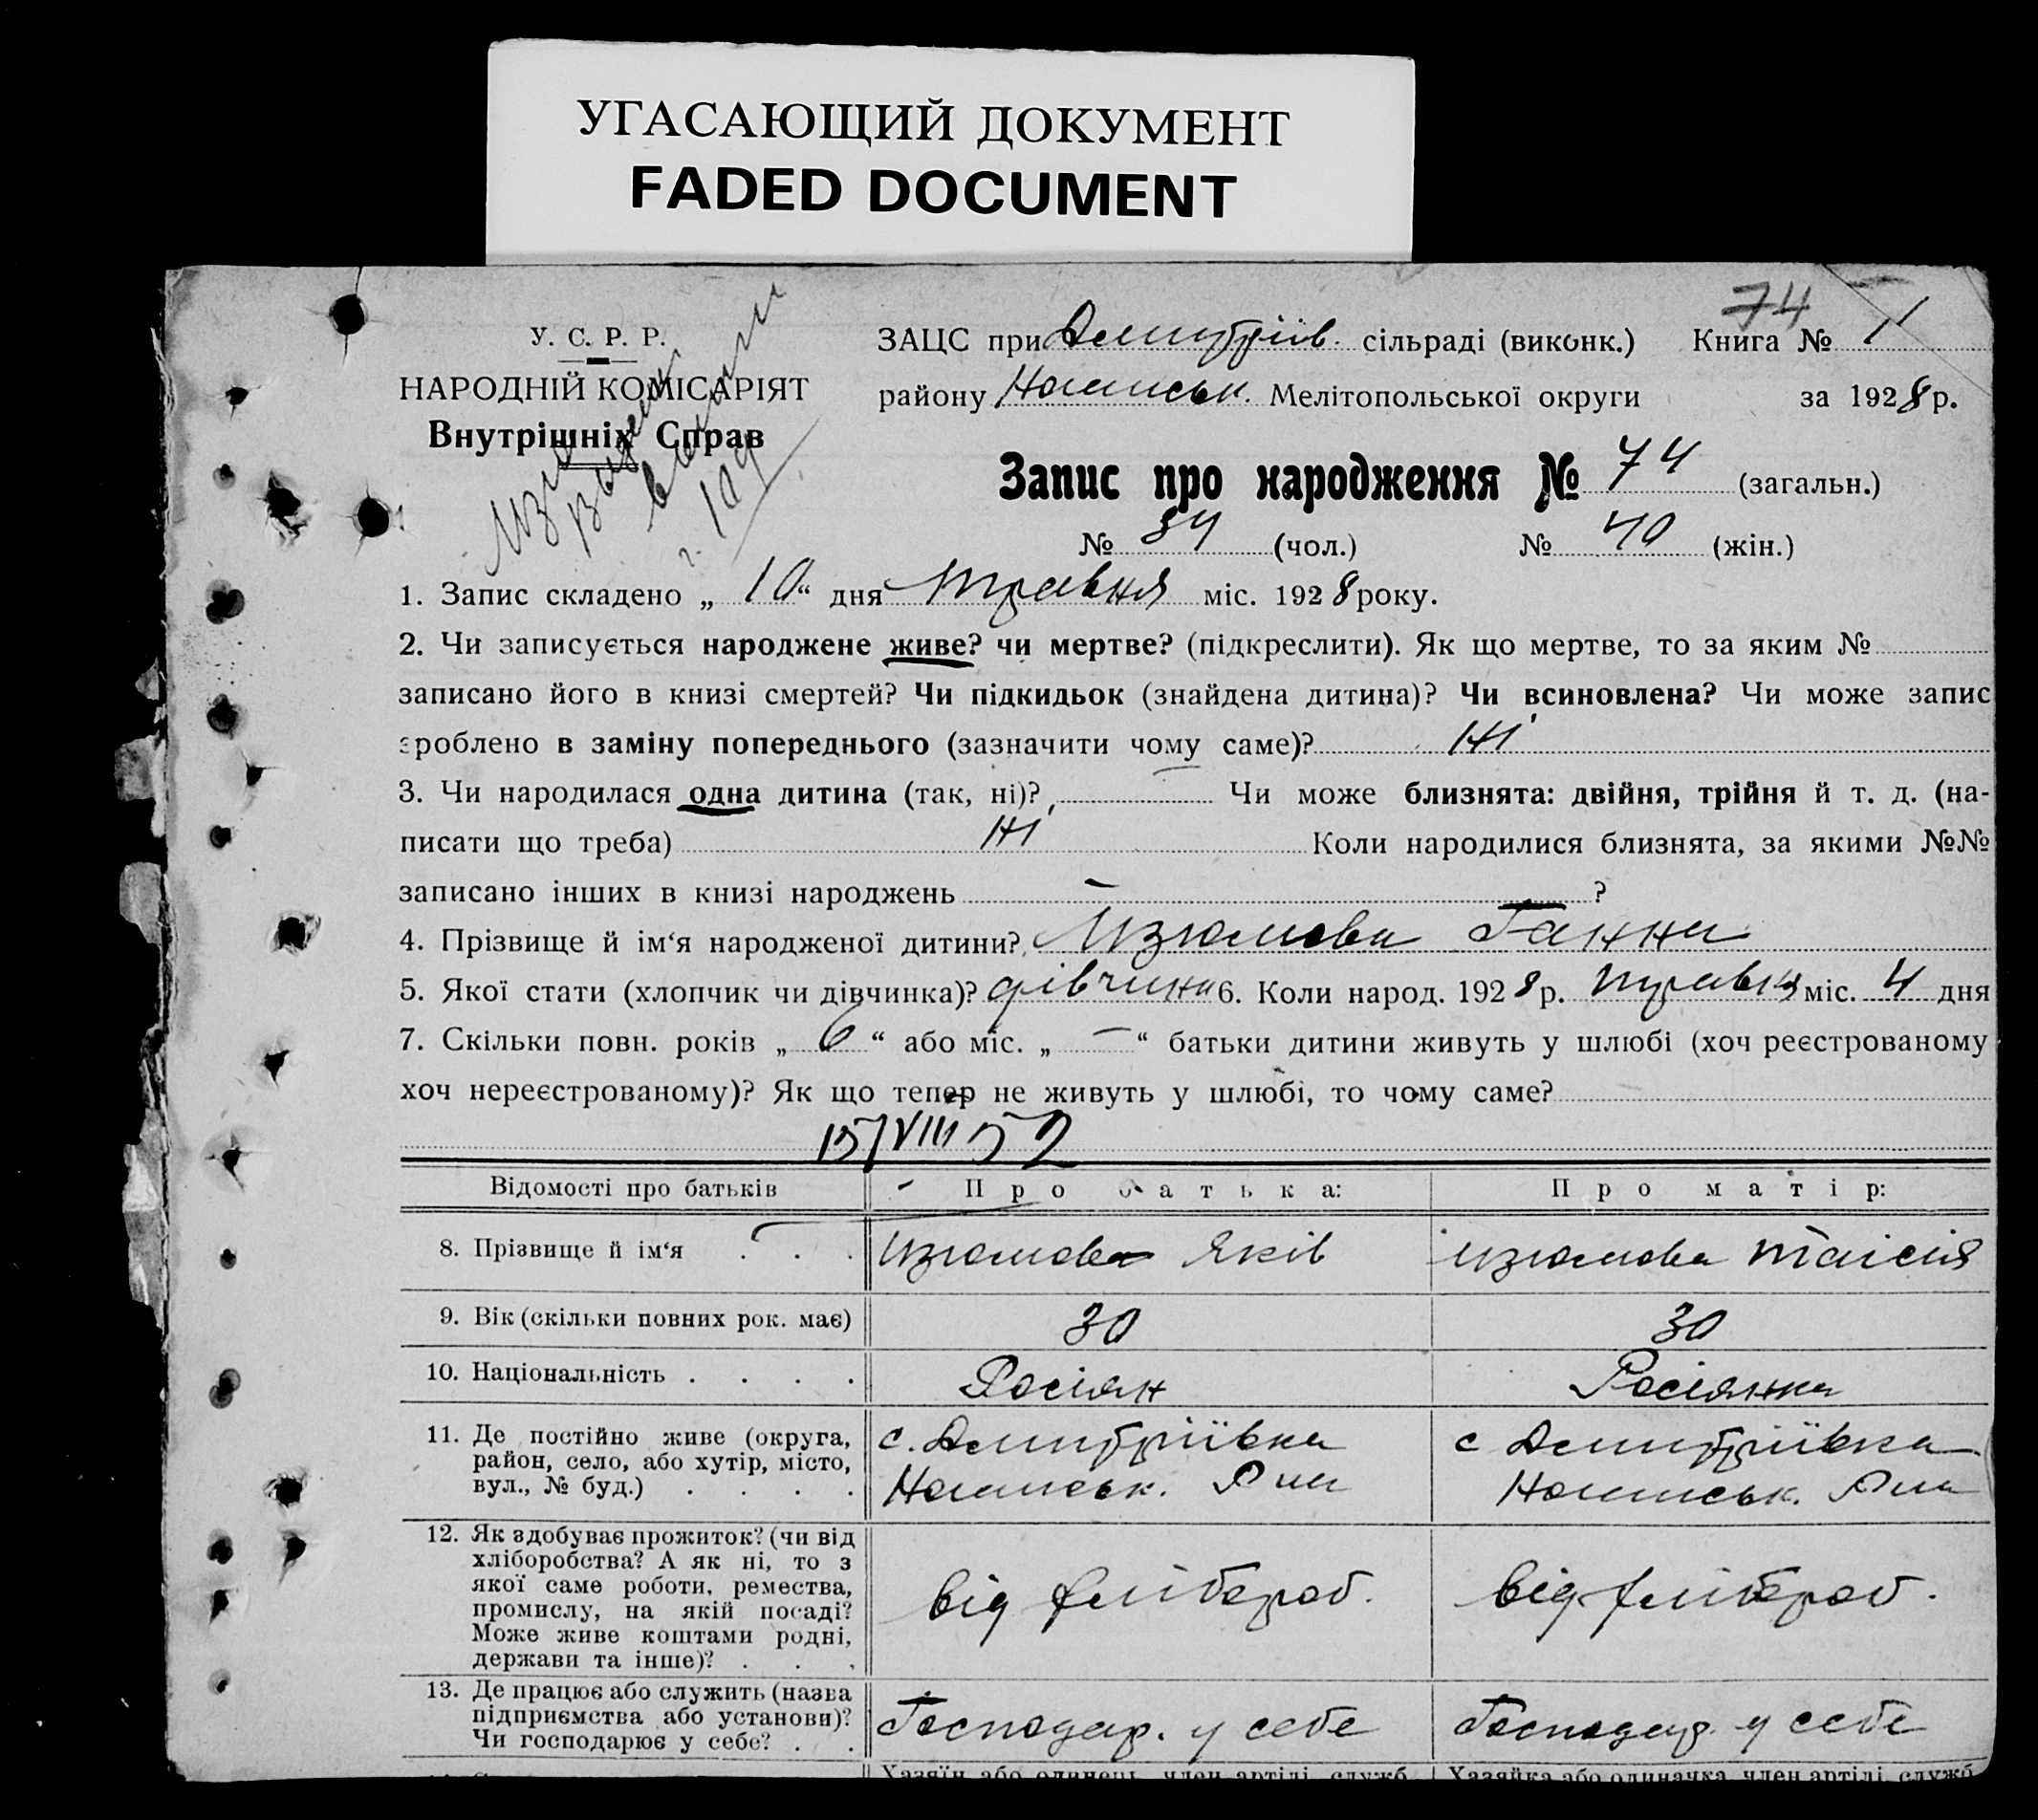 УГАСАЮЩИЙ ДОКУМЕНТ
FADED DOCUMENT
74
У. С. Р. Р.
НАРОДНІЙ КОМІСАРІЯТ
Внутрішніх Справ
ЗАЦС при Дмитріїв. сільраді (виконк.) Книга № 11
району Мелітопольської округи за 1928 р.
Запис про народження № 74 (загальн.)
№ 34 (чол.) № 40 (жін.)
1. Запис складено „ 10 “ дня травня міс. 1928 року.
2. Чи записується народжене живе? чи мертве? (підкреслити). Як що мертве, то за яким №
записано його в книзі смертей? Чи підкидьок (знайдена дитина)? Чи всиновлена? Чи може запис
зроблено в заміну попереднього (зазначити чому саме)? Ні
3. Чи народилася одна дитина (так, ні)? Чи може близнята: двійня, трійня й т. д. (на-
писати що треба) Ні Коли народилися близнята, за якими №№
записано інших в книзі народжень — ?
4. Прізвище й ім‘я народженої дитини? Изюмова Ганна
5. Якої стати (хлопчик чи дівчинка)? дівчина 6. Коли народ. 1928 р. травня міс. 4 дня
7. Скільки повн. років „ 6 “ або міс. „ — “ батьки дитини живуть у шлюбі (хоч реєстрованому
хоч нереєстрованому)? Як що тепер не живуть у шлюбі, то чому саме?
15/VIII 52
Відомості про батьків Про батька: Про матір:
8. Прізвище й ім‘я . . . Изюмова Яків Изюмова Таісія
9. Вік (скільки повних рок. має) 30 30
10. Національність . . . . Росіян Росіянка
11. Де постійно живе (округа,
район, село, або хутір, місто,
вул., № буд.) . . . .
с. Дмитріївка
с Дмитріївка
12. Як здобуває прожиток? (чи від
хліборобства? А як ні, то з
якої саме роботи, ремества,
промислу, на якій посаді?
Може живе коштами родні,
держави та інше)? . . .
від хлібороб.
від хлібороб.
13. Де працює або служить (назва
підприємства або установи)?
Чи господарює у себе? . .
Господар. у себе
Господар. у себе
Хазяїн або одинець, член артілі, служб.
Хазяйка або одиначка, член артілі, служб